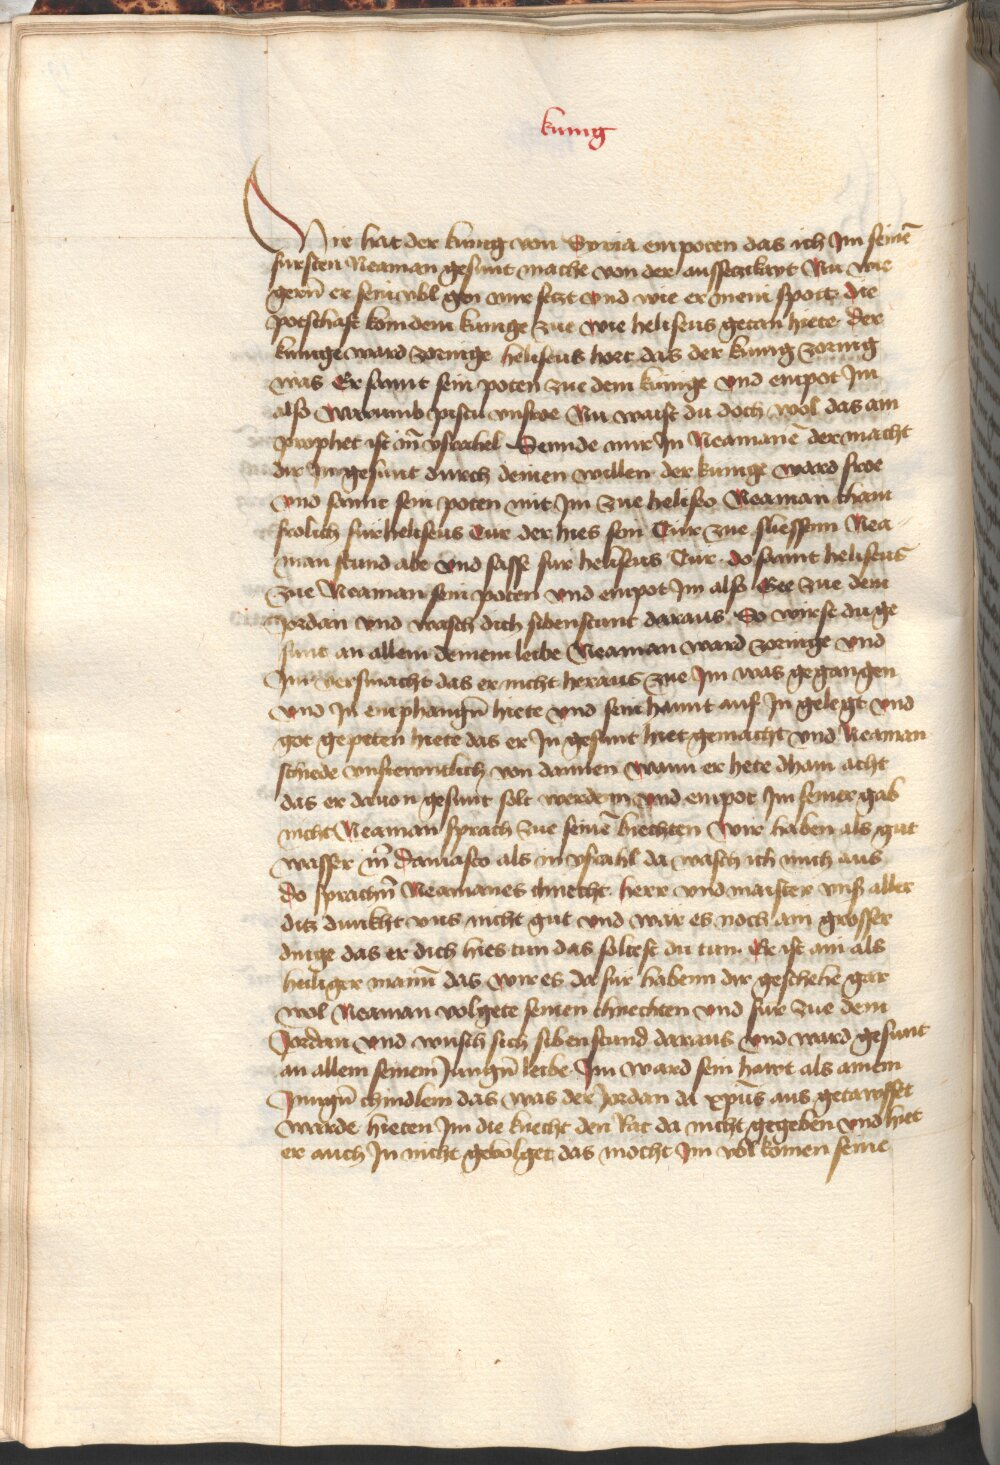 kunig
Mir hat der kunig von Syria empoten das ich Jm seinē
fursten Neaman gesunt mache von der aussetzikayt Nu wie
gerñ er sein vbl gen mir setzt vnd wie er mein spott Die
potschaft kom dem kunige zue wie heliseus getan hiete Der
kunige ward zornige heliseus hort das der kunig zornig
was Er sannt sein poten zue dem kunige vnd enpot Jm
also Warumb pistu vnfroe Nu waist du doch wol das ain
prophet ist in ysrahel Sennde mir Jn Neamanē der macht
dir Jn gesunt durch deinen willen der kunige ward froe
vnd sannt sein poten mit Jm zue heliseo Neaman cham
frolich fur heliseus Tur der hies sein Tur zue sliessenn Nea-
man stund abe vnd sasse fur heliseus Tur do sannt heliseus
zue Neaman sein poten vnd empot Jm also Gee zue dem
Jordan vnd wasch dich sibenstunt daraus So wirst du ge
sunt an allem deinem leibe Neaman ward zornige vnd
Jm versmacht das er nicht heraus zue Jm was gegangen
vnd Jn emphangñ hiete vnd sein hannt auf Jn gelegt vnd
got gepeten hiete das er Jn gesunt hiet gemacht vnd Neaman
schiede vnfrewntlich von dannen Wann er hete dhain acht
das er dauon gesunt solt werdenn vnd empot Jm seiner gab
nicht Neaman sprach zue seinē knechten Wir haben als gut
wasser in Damasco als in ysrahl da wasch ich mich aus
Do sprachñ Neamanes chnecht herr vnd maister vnß aller
ditz dunkht vns nicht gut vnd war es noch ain grosser
dinge das er dich hies tun das soltest du tun Er ist ain als
heiliger mann das wir es da fur habenn dir geschehe gar
wol Neaman volgete seinen chnechten vnd fur zue dem
Jordan vnd wusch sich sibenstund daraus vnd ward gesunt
an allem seinem Jungñ leibe Jm ward sein hawt als ainem
Jungñ chindlein das was der Jordan da xp̄us aus getawffet
warde hieten Jm die knecht den Rat da nicht gegeben vnd hiet
er auch Jn nicht geuolget das mocht Jm vbl komen seine